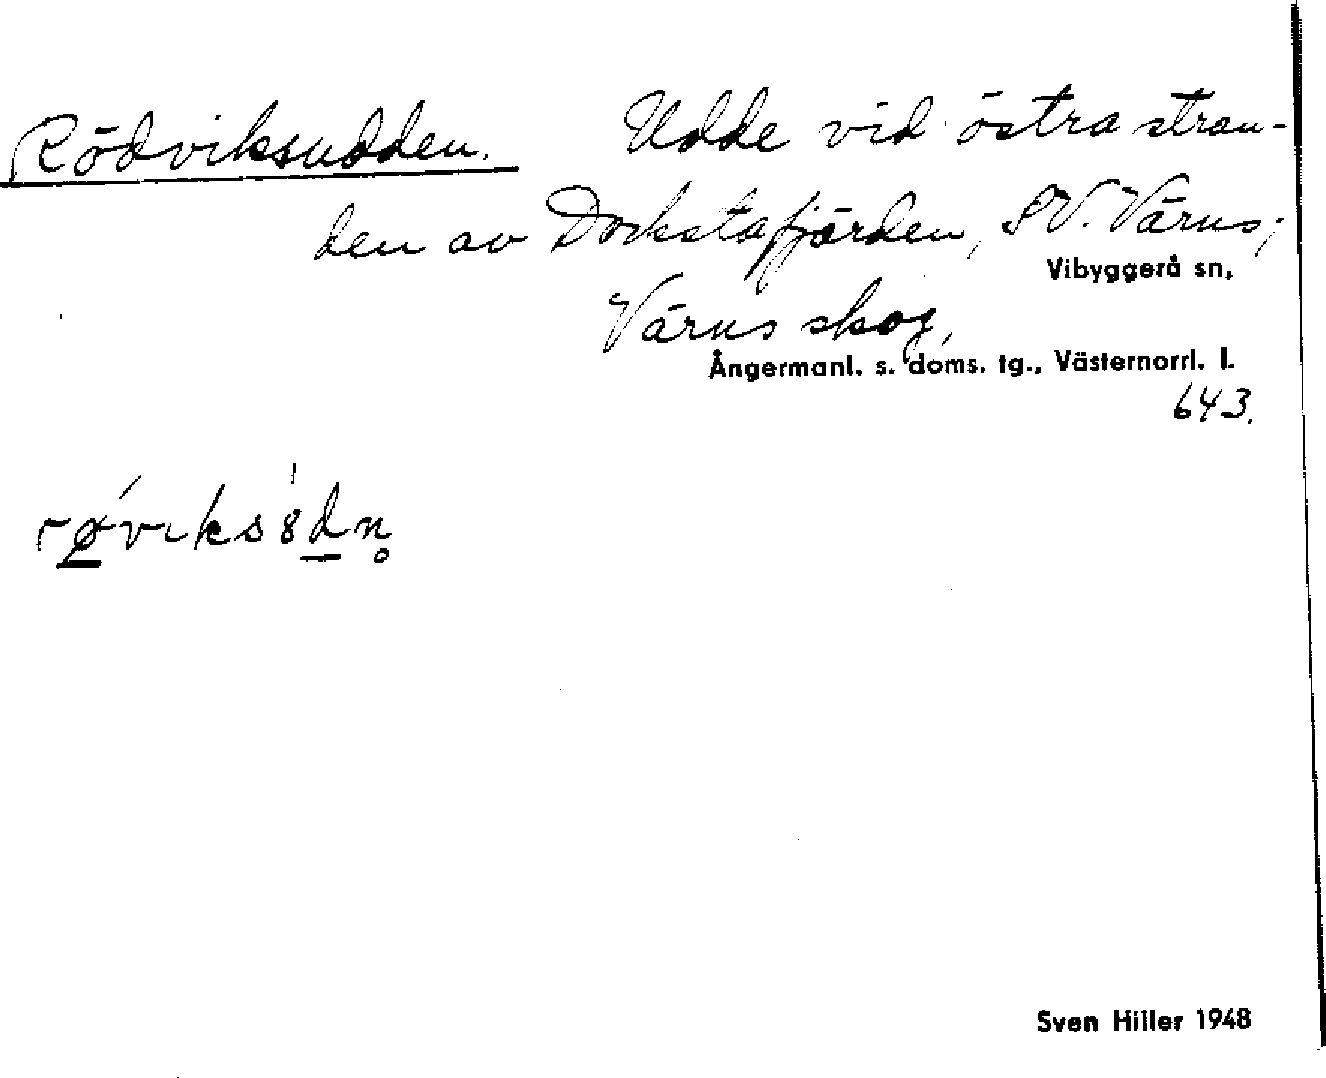 Rödviksudden. Udde vid östra stran-
den av Dockstafjärden, SV. Värns;
Vibyggerå sn,
Värns skog,
Ångermanl. s. doms. tg., Västernorrl. l.
643.
røvıks8dn̥
Sven Hiller 1948